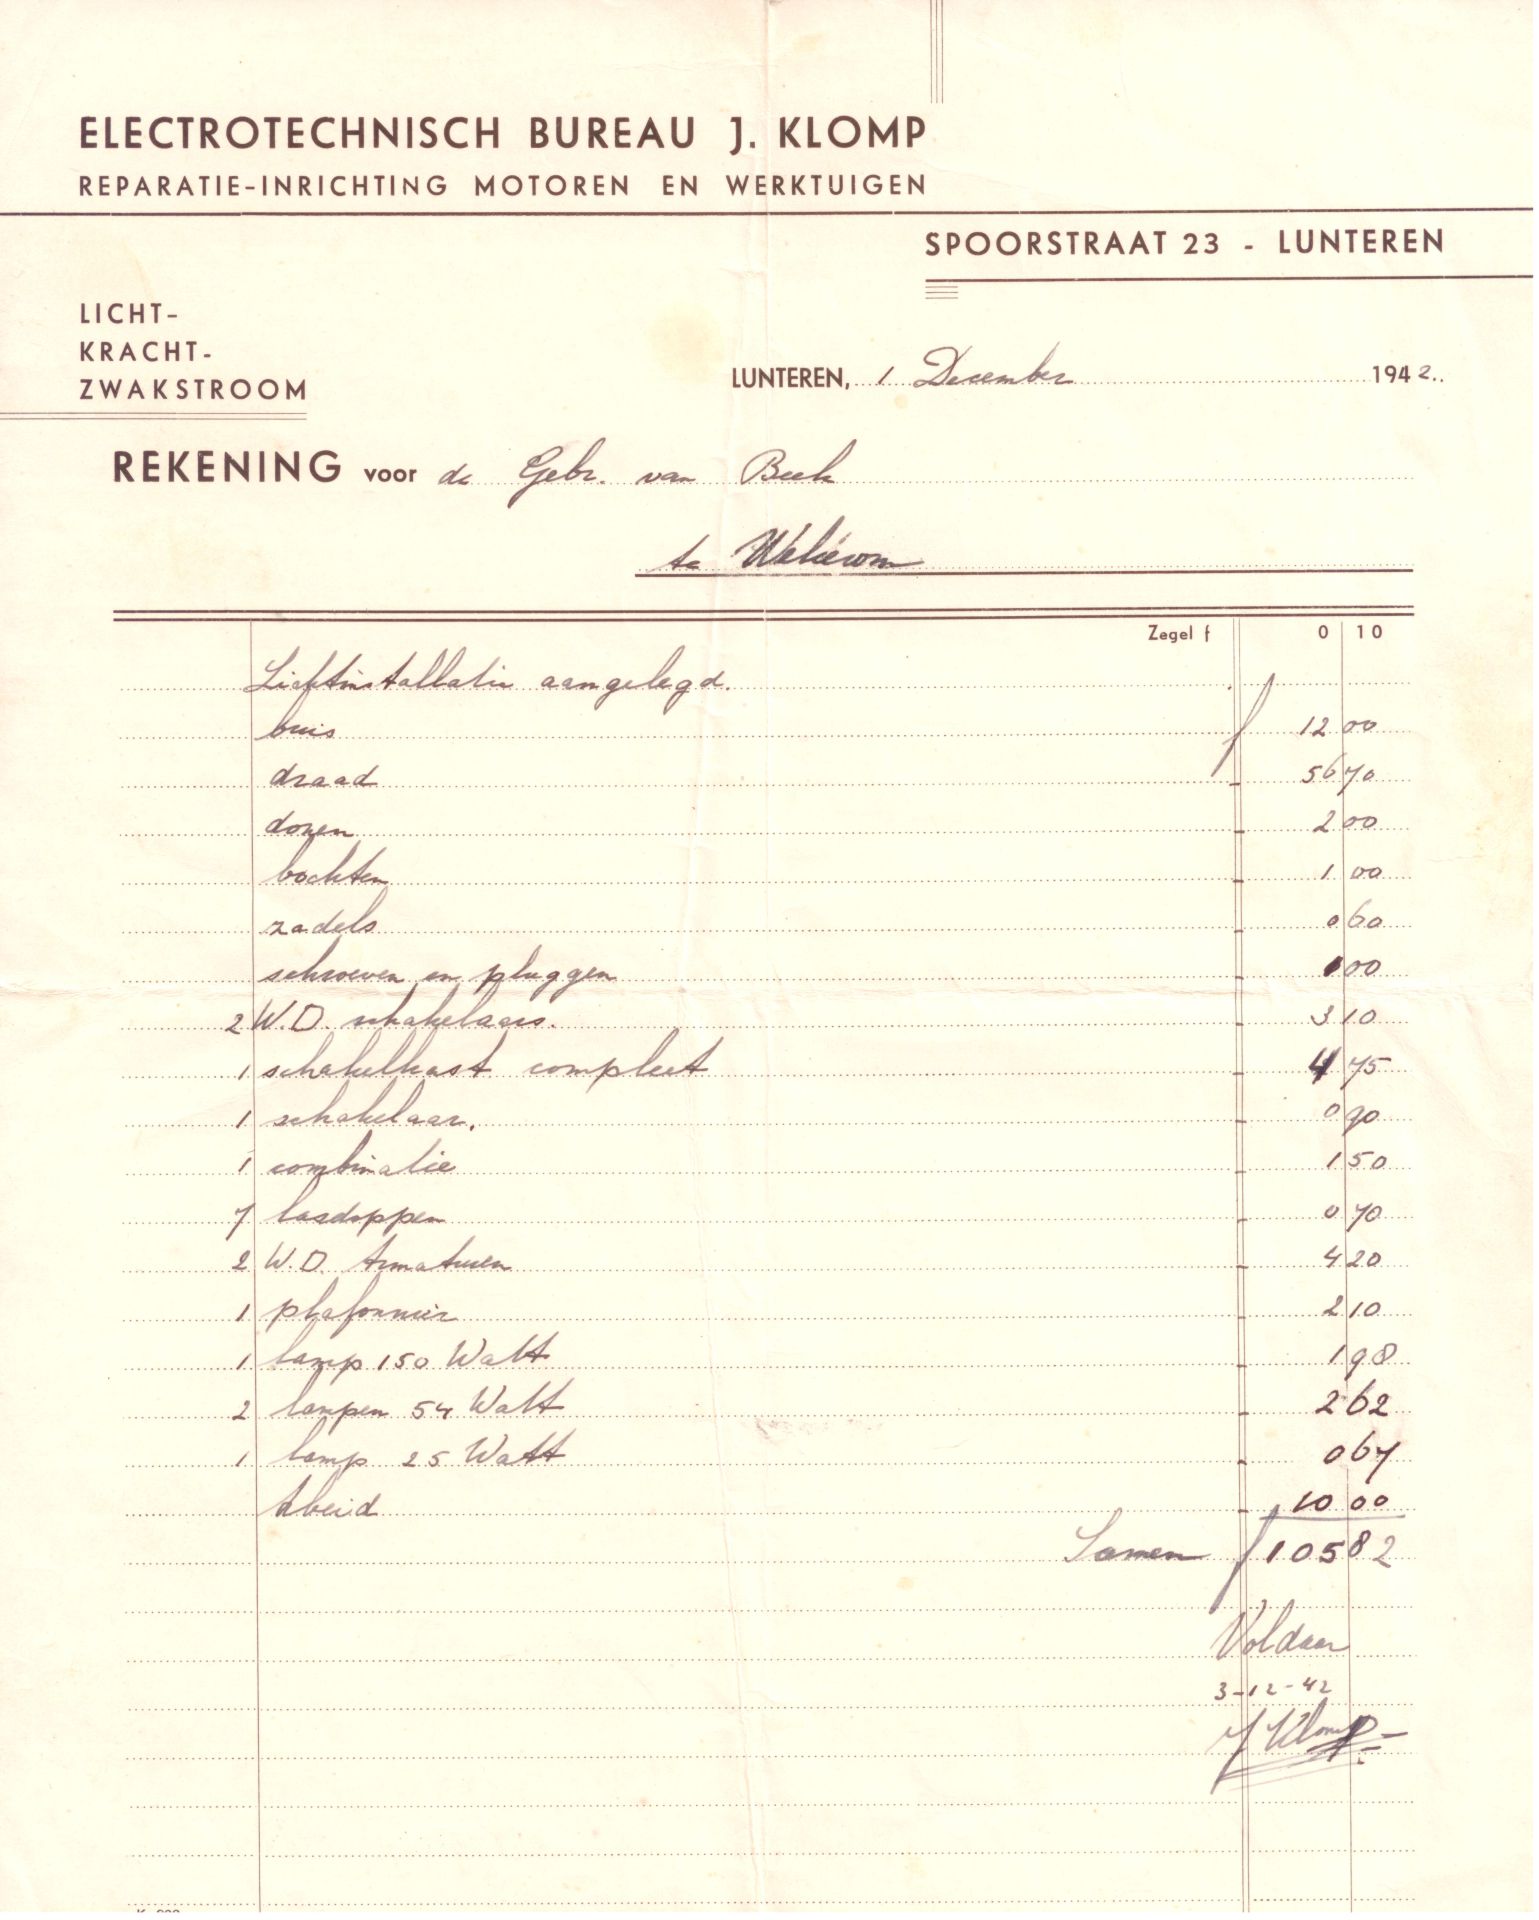 ELECTROTECHNISCH BUREAU J. KLOMP
REPARATIE-INRICHTING MOTOREN EN WERKTUIGEN
SPOORSTRAAT 23 - LUNTEREN
LICHT-
KRACHT-
ZWAKSTROOM
LUNTEREN, 1 December 1942.
REKENING voor de Gebr. van Beek
te
Zegel f 0 10
Lichtinstallatie aangelegd.
buis f 12 00
draad - 56 70
dozen - 2 00
bochten - 1 00
zadels - 0 60
schroeven en pluggen - 1 00
2 W.D. schakelaars. - 3 10
1 schakelkast compleet - 4 75
1 schakelaar. - 0 90
1 combinatie - 1 50
7 lasdoppen - 0 70
2 W.D. Armaturen - 4 20
1 plafonnier - 2 10
1 lamp 150 Watt - 1 98
2 lampen 54 Watt - 2 62
1 lamp 25 Watt - 0 67
Arbeid - 10 00
Samen f 105 82
Voldaan
3-12-42
J Klomp